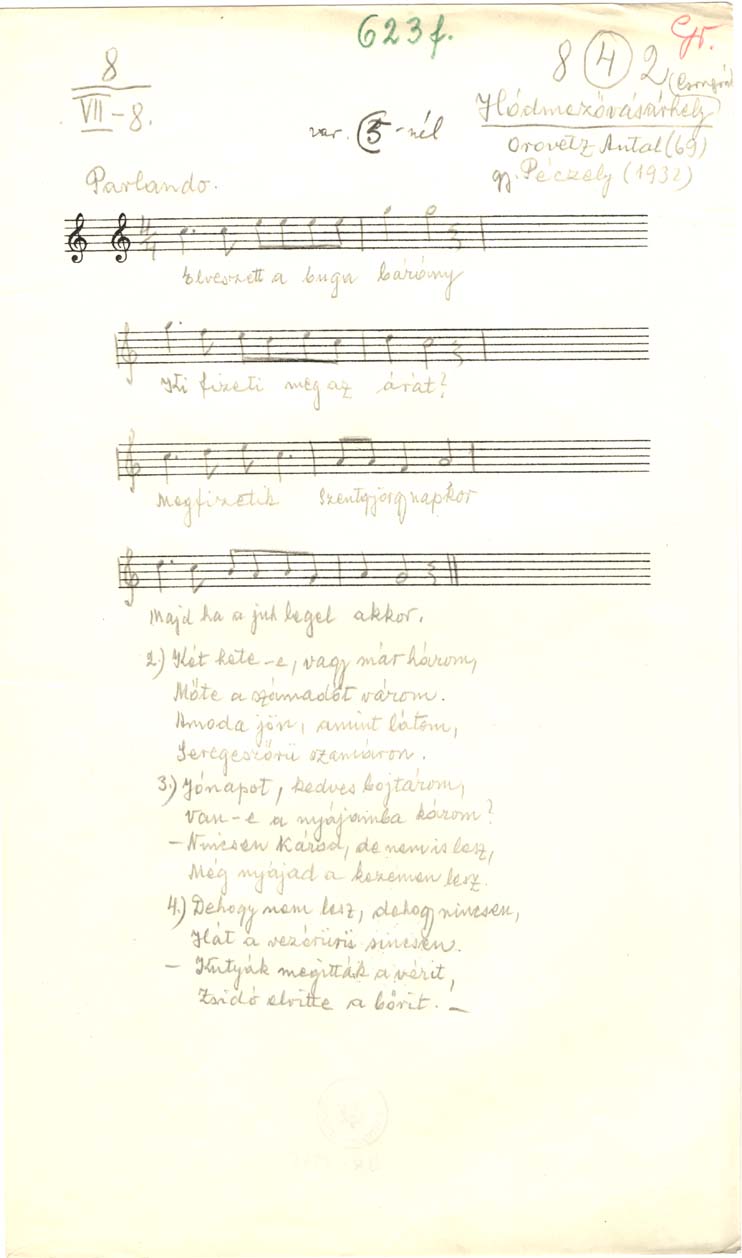 623f.
Gr.
8
VII-8.
8 4 2
(Csongrád)
var. 5-nél
Hódmezővásárhely
Orovetz Antal (69)
gy. Péczely (1932)
Parlando.
4/4
Elveszett a buga bárány
Ki fizeti meg az árát?
Megfizetik Szentgyörgynapkor
Majd ha a juh legel akkor.
2.) Két hete-e, vagy már három,
Mőte a számadót várom.
Amoda jön, amint látom,
Seregeszőrü szamáron.
3.) Jónapot, kedves bojtárom,
Van-e a nyájamba károm?
- Nincsen károd, de nem is lesz,
Még nyájad a kezemen lesz.
4.) Dehogy nem lesz, dehogy nincsen,
Hát a vezérürü sincsen.
- Kutyák megitták a vérit,
Zsidó elvitte a bőrit. -